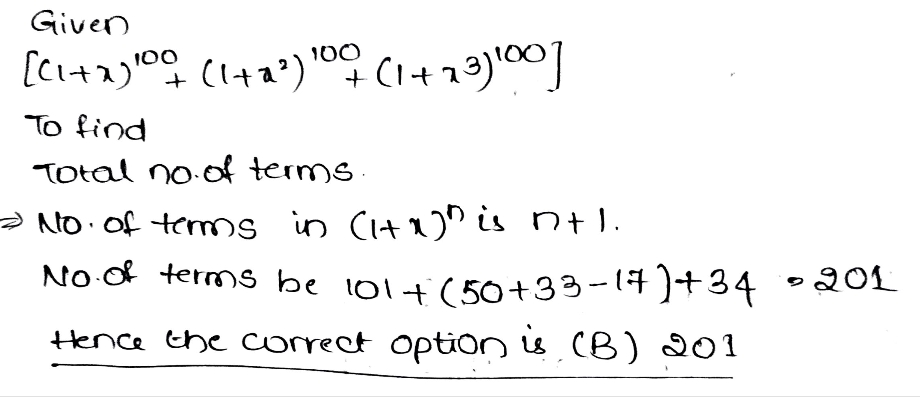 Given
[(1+x)^100 + (1+x²)^100 + (1+x³)^100]
To find
Total no.of terms.
⇒ No. of terms in (1+x)^n is n+1.
No.of terms be 101+(50+33-17)+34 = 201
Hence the correct option is (B) 201